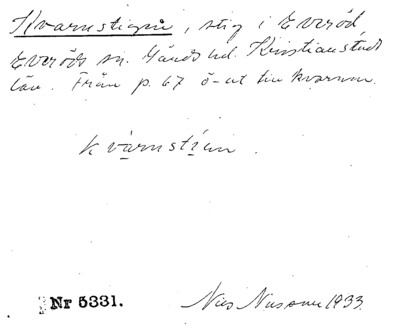 Kvarnstigen, stig i Everöd
Everöds sn. Gärds hd. Kristianstads
län. Från p. 67 ö-ut till kvarnen.
kvarnstian.
Nr 5331. Nils Nilsson 1933.